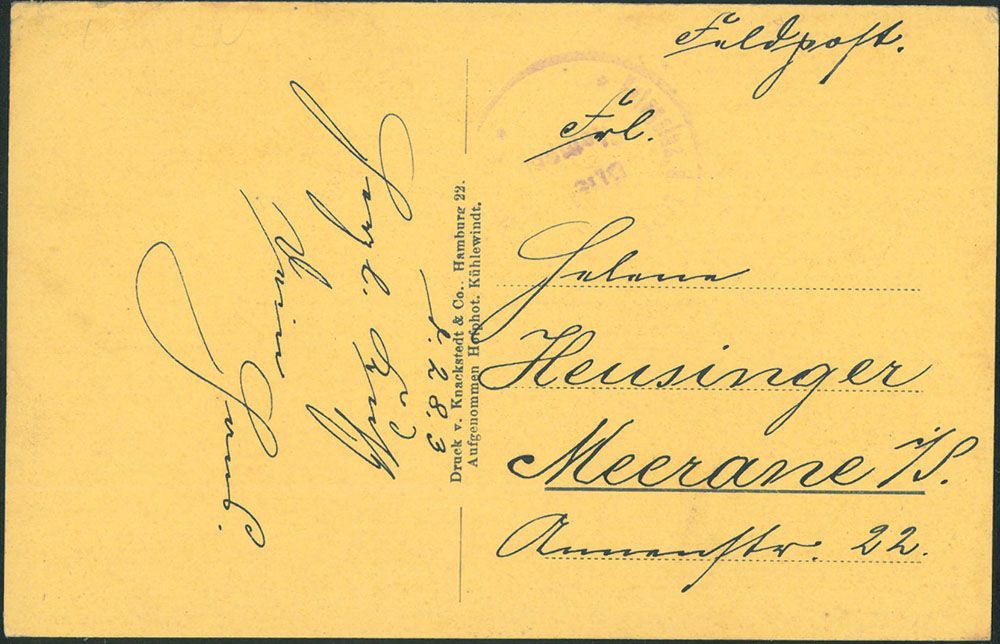 Feldpost.
Frl.
Helene
Heusinger
Meerane i/S.
Annenstr. 22.
Druck v. Knackstedt & Co., Hamburg 22.
Aufgenommen Hofphot. Kühlewindt.
d. 28. 3
Herzl. Gruß
Dein